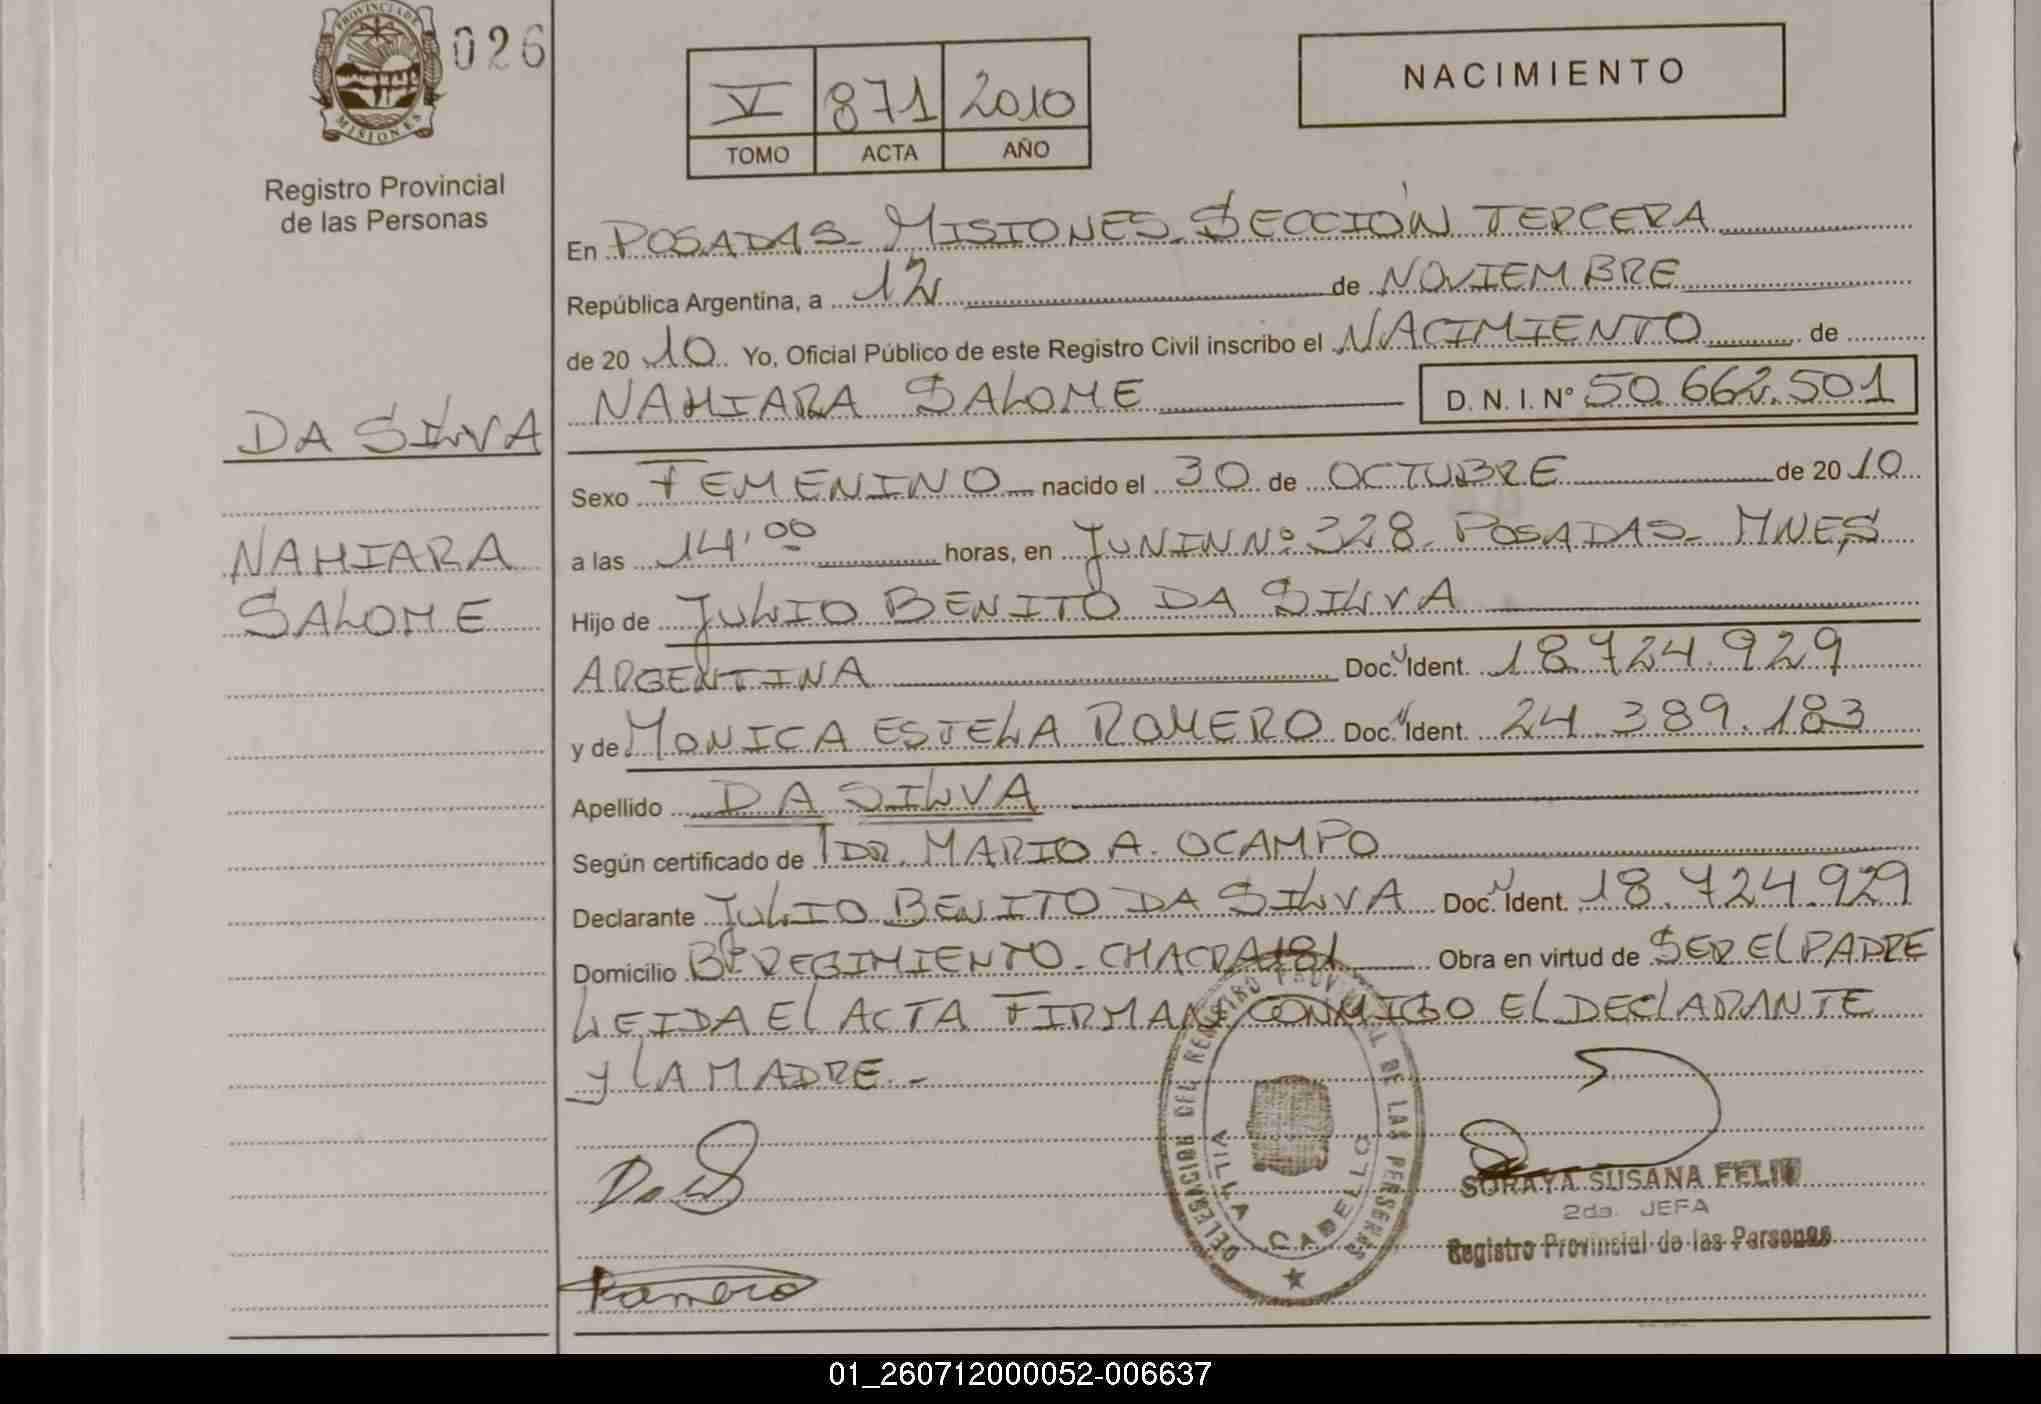 PROVINCIA DE
MISIONES
026
Registro Provincial
de las Personas
V 871 2010
TOMO ACTA AÑO
NACIMIENTO
En POSADAS - MISIONES - SECCIÓN TERCERA
República Argentina, a 12 de NOVIEMBRE
de 20 10 Yo, Oficial Público de este Registro Civil inscribo el NACIMIENTO de
NAHIARA SALOME D. N. I. Nº 50.662.501
DA SILVA
Sexo FEMENINO nacido el 30 de OCTUBRE de 20 10
NAHIARA
SALOME
a las 14,00 horas, en JUNIN Nº 328 - POSADAS - MNES
Hijo de JULIO BENITO DA SILVA
ARGENTINA Doc. Ident. 18.724.929
y de MONICA ESTELA ROMERO Doc. Ident. 24.389.183
Apellido DA SILVA
Según certificado de DR. MARIO A. OCAMPO
Declarante JULIO BENITO DA SILVA Doc. Ident. 18.724.929
Domicilio Bº REGIMIENTO - CHACRA 181 Obra en virtud de SER EL PADRE
LEIDA EL ACTA FIRMAN CONMIGO EL DECLARANTE
Y LA MADRE.-
DELEGACION DEL REGISTRO PROVINCIAL DE LAS PERSONAS
VILLA CABELLO
SORAYA SUSANA FELIU
2da. JEFA
Registro Provincial de las Personas
Romero
01_260712000052-006637